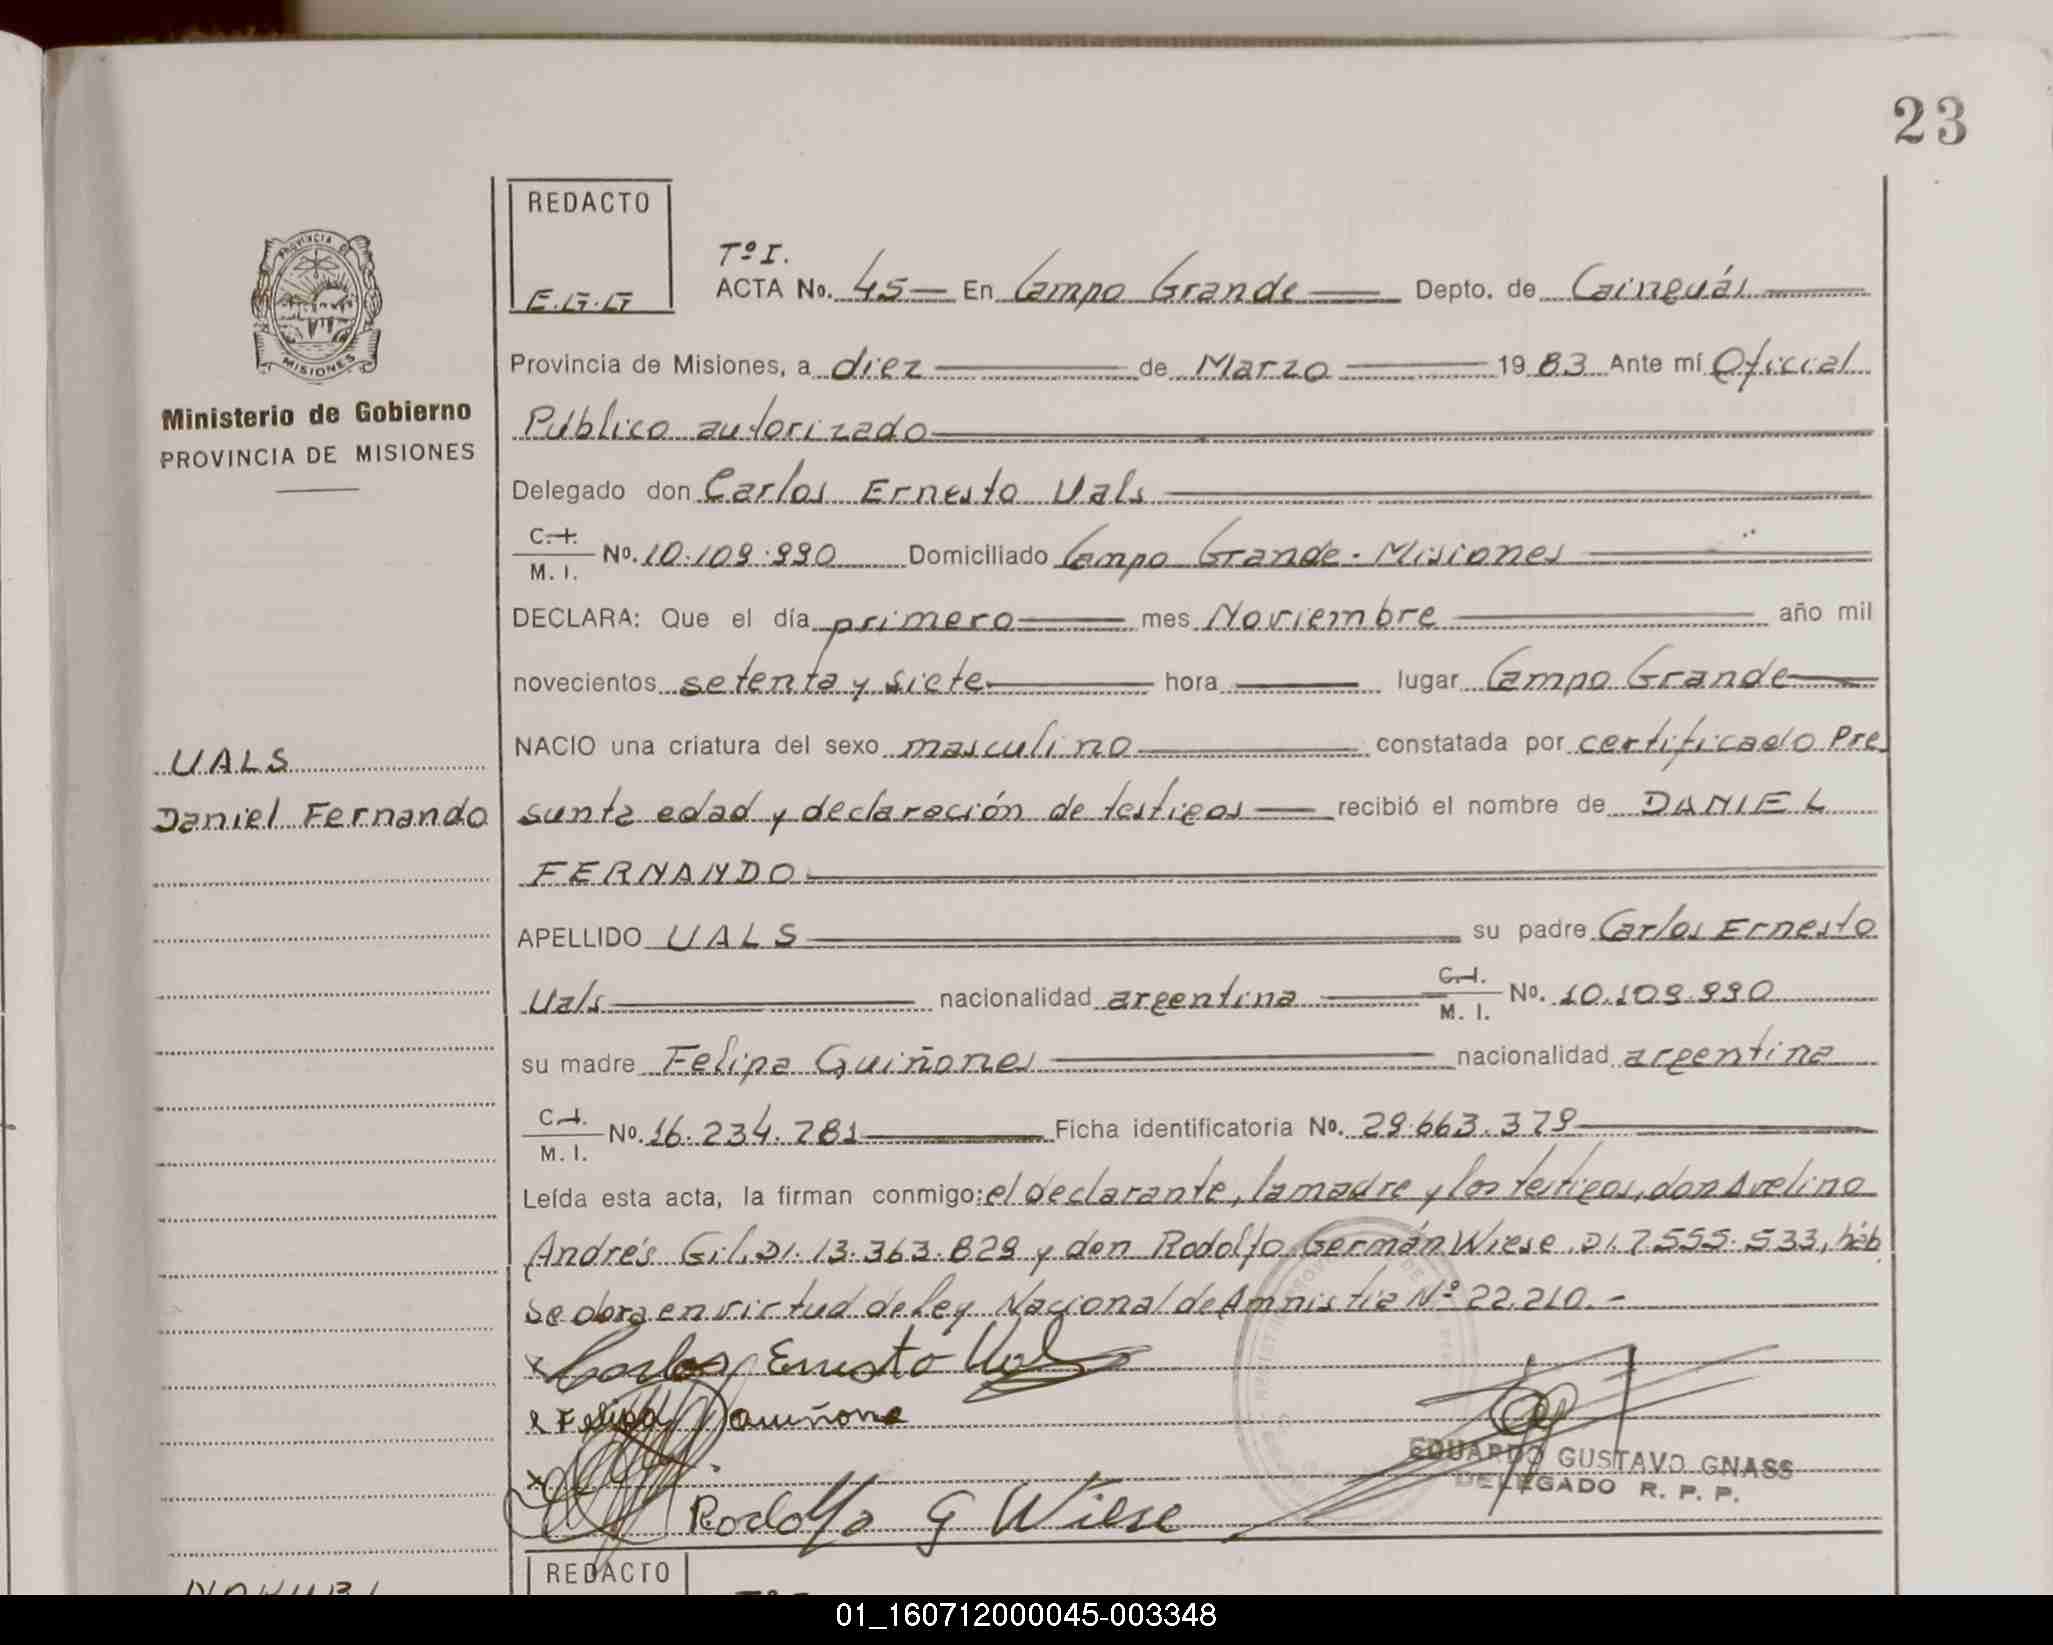 23
REDACTO
E.G.G
PROVINCIA DE
MISIONES
Ministerio de Gobierno
PROVINCIA DE MISIONES
Tº I.
ACTA No. 45 En Campo Grande Depto. de Cainguás
Provincia de Misiones, a diez de Marzo 1983 Ante mí Oficial
Público autorizado
Delegado don Carlos Ernesto Uals
C.I. M. I. No. 10.109.990 Domiciliado Campo Grande - Misiones
DECLARA: Que el día primero mes Noviembre año mil
novecientos setenta y siete hora lugar Campo Grande
NACIO una criatura del sexo masculino constatada por certificado Pre
UALS
Daniel Fernando
sunta edad y declaración de testigos recibió el nombre de DANIEL
FERNANDO
APELLIDO UALS su padre Carlos Ernesto
Uals nacionalidad argentina C.I. M. I. No. 10.109.990
su madre Felipa Quiñones nacionalidad argentina
C.I. M. I. No. 16.234.781 Ficha identificatoria No. 29.663.379
Leída esta acta, la firman conmigo: el declarante, la madre y los testigos, don Avelino
Andrés Gil, DI. 13.363.829 y don Rodolfo Germán Wiese DI. 7.555.533, háb
Se obra en virtud de ley Nacional de Amnistia Nº 22.210.-
x Carlos Ernesto Uals
x Felipa Quiñone
x
Rodolfo G Wiese
EDUARDO GUSTAVO GNASS
DELEGADO R. P. P.
REDACTO
01_160712000045-003348